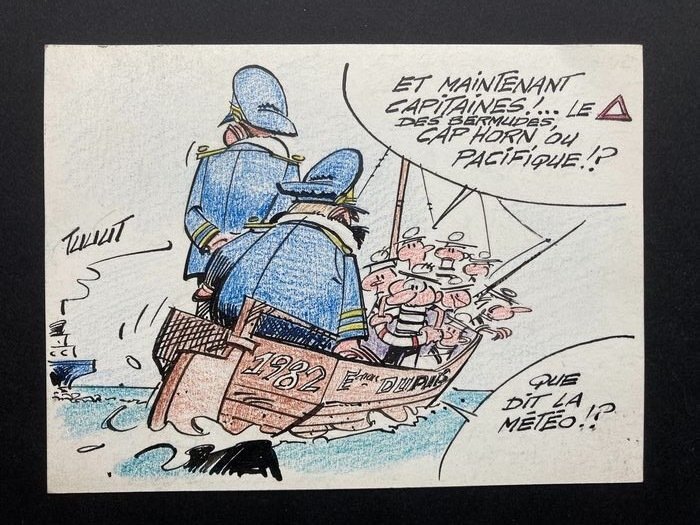 ET MAINTENANT
CAPITAINES!... LE
DES BERMUDES,
CAP HORN OU
PACIFIQUE!?
TUUUT
1982 Eons DUPUIS
QUE
DIT LA
MÉTÉO!?